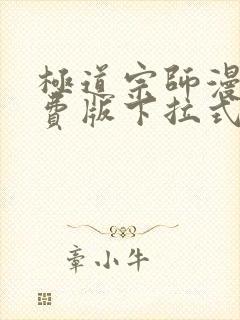 極道宗師漫
費版下拉式
章小牛